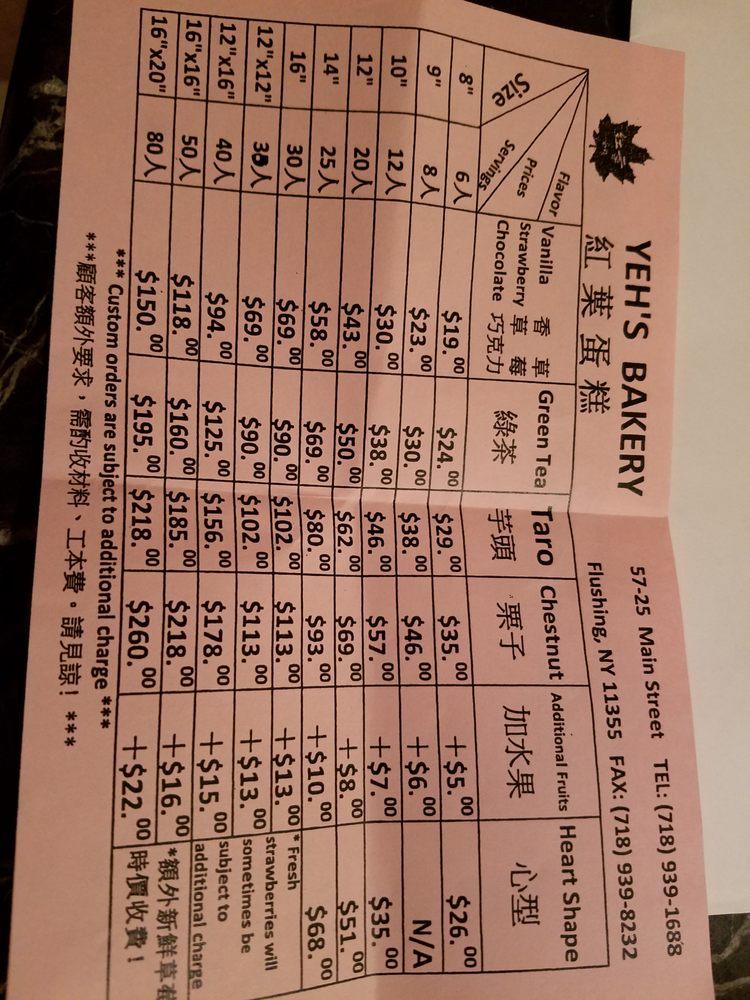 YEH'S BAKERY
紅葉蛋糕
57-25 Main Street TEL: (718) 939-1688
Flushing, NY 11355 FAX: (718) 939-8232
Flavor
Prices
Servings
Size
Vanilla 香草
Strawberry 草莓
Chocolate 巧克力
Green Tea
綠茶
Taro
芋頭
Chestnut
栗子
Additional Fruits
加水果
Heart Shape
心型
8" 6人 $19.00 $24.00 $29.00 $35.00 +$5.00 $26.00
9" 8人 $23.00 $30.00 $38.00 $46.00 +$6.00 N/A
10" 12人 $30.00 $38.00 $46.00 $57.00 +$7.00 $35.00
12" 20人 $43.00 $50.00 $62.00 $69.00 +$8.00 $51.00
14" 25人 $58.00 $69.00 $80.00 $93.00 +$10.00 $68.00
16" 30人 $69.00 $90.00 $102.00 $113.00 +$13.00
12"x12" 人 $69.00 $90.00 $102.00 $113.00 +$13.00
12"x16" 40人 $94.00 $125.00 $156.00 $178.00 +$15.00
16"x16" 50人 $118.00 $160.00 $185.00 $218.00 +$16.00
16"x20" 80人 $150.00 $195.00 $218.00 $260.00 +$22.00
* Fresh
strawberries will
sometimes be
subject to
additional charge
*額外新鮮草莓
時價收費！
*** Custom orders are subject to additional charge ***
***顧客額外要求，需酌收材料、工本費。請見諒！***